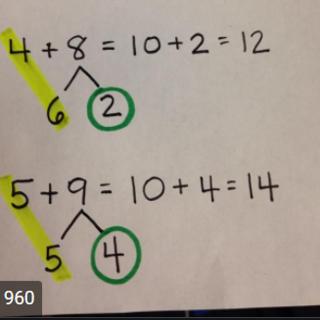 4 + 8 = 10 + 2 = 12
6 2
5 + 9 = 10 + 4 = 14
5 4
960